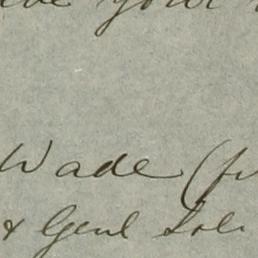 your
Wade (
& Genl Sol.